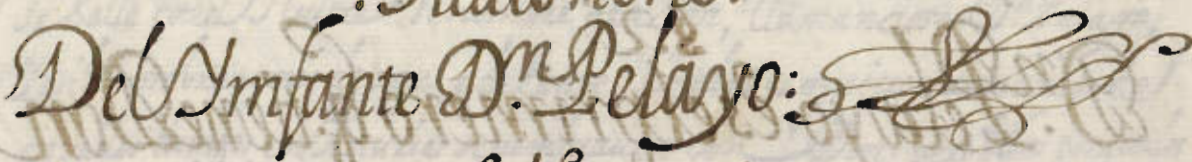 Del Ymfante D.n Pelayo: